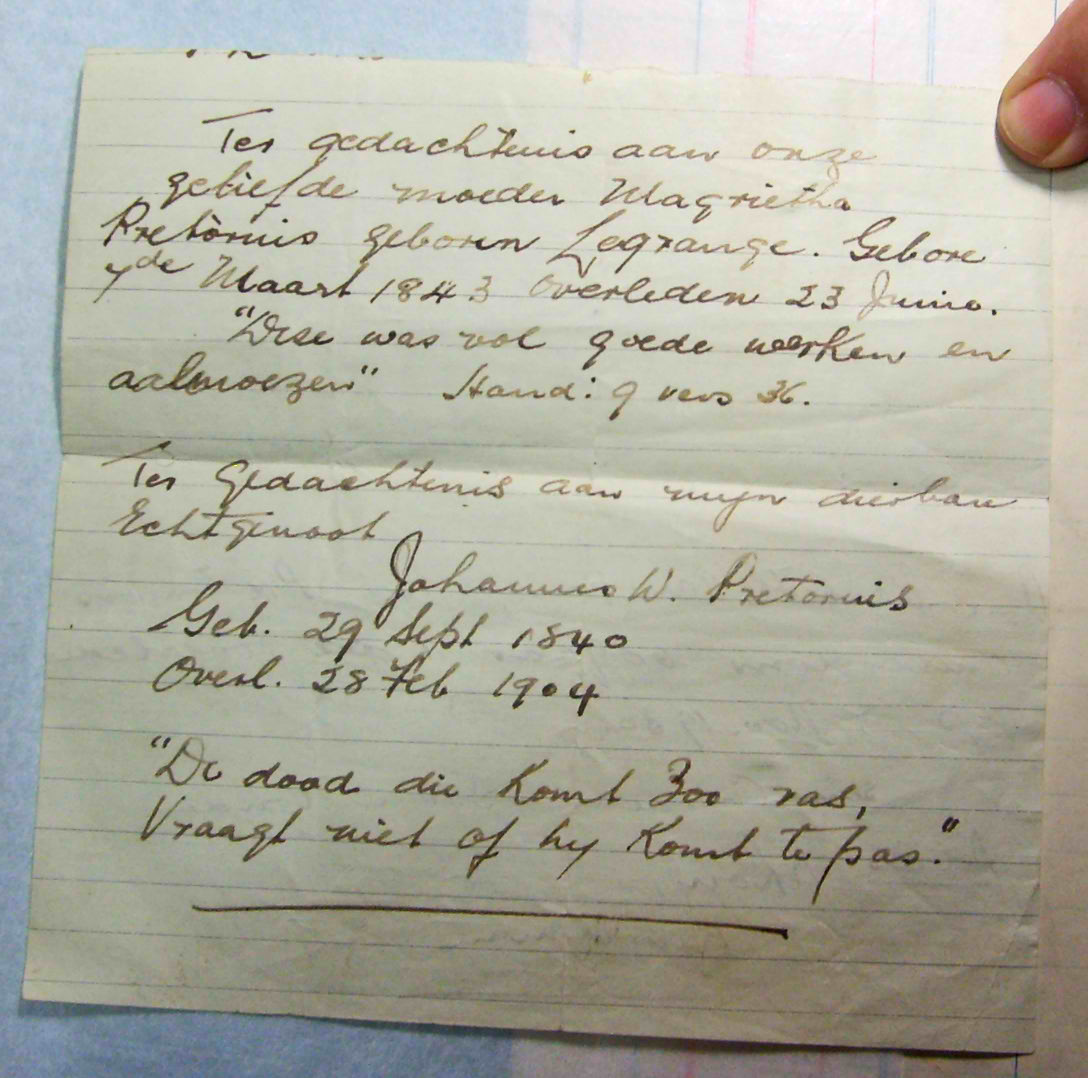 Ter gedachtenis aan onze
geliefde moeder Magrietha
Pretorius geboren Legrange. Gebore
7de Maart 1843 Overleden 23 Junie.
"Dese was vol goede werken en
aalmoezen" Hand: 9 vers 36.
Ter Gedachtenis aan mijn dierbare
Echtgenoot
Johannes W. Pretorius
Geb. 29 Sept 1840
Overl. 28 Feb 1904
"De dood die Komt Zoo ras,
Vraagt niet of hy Komt te pas."